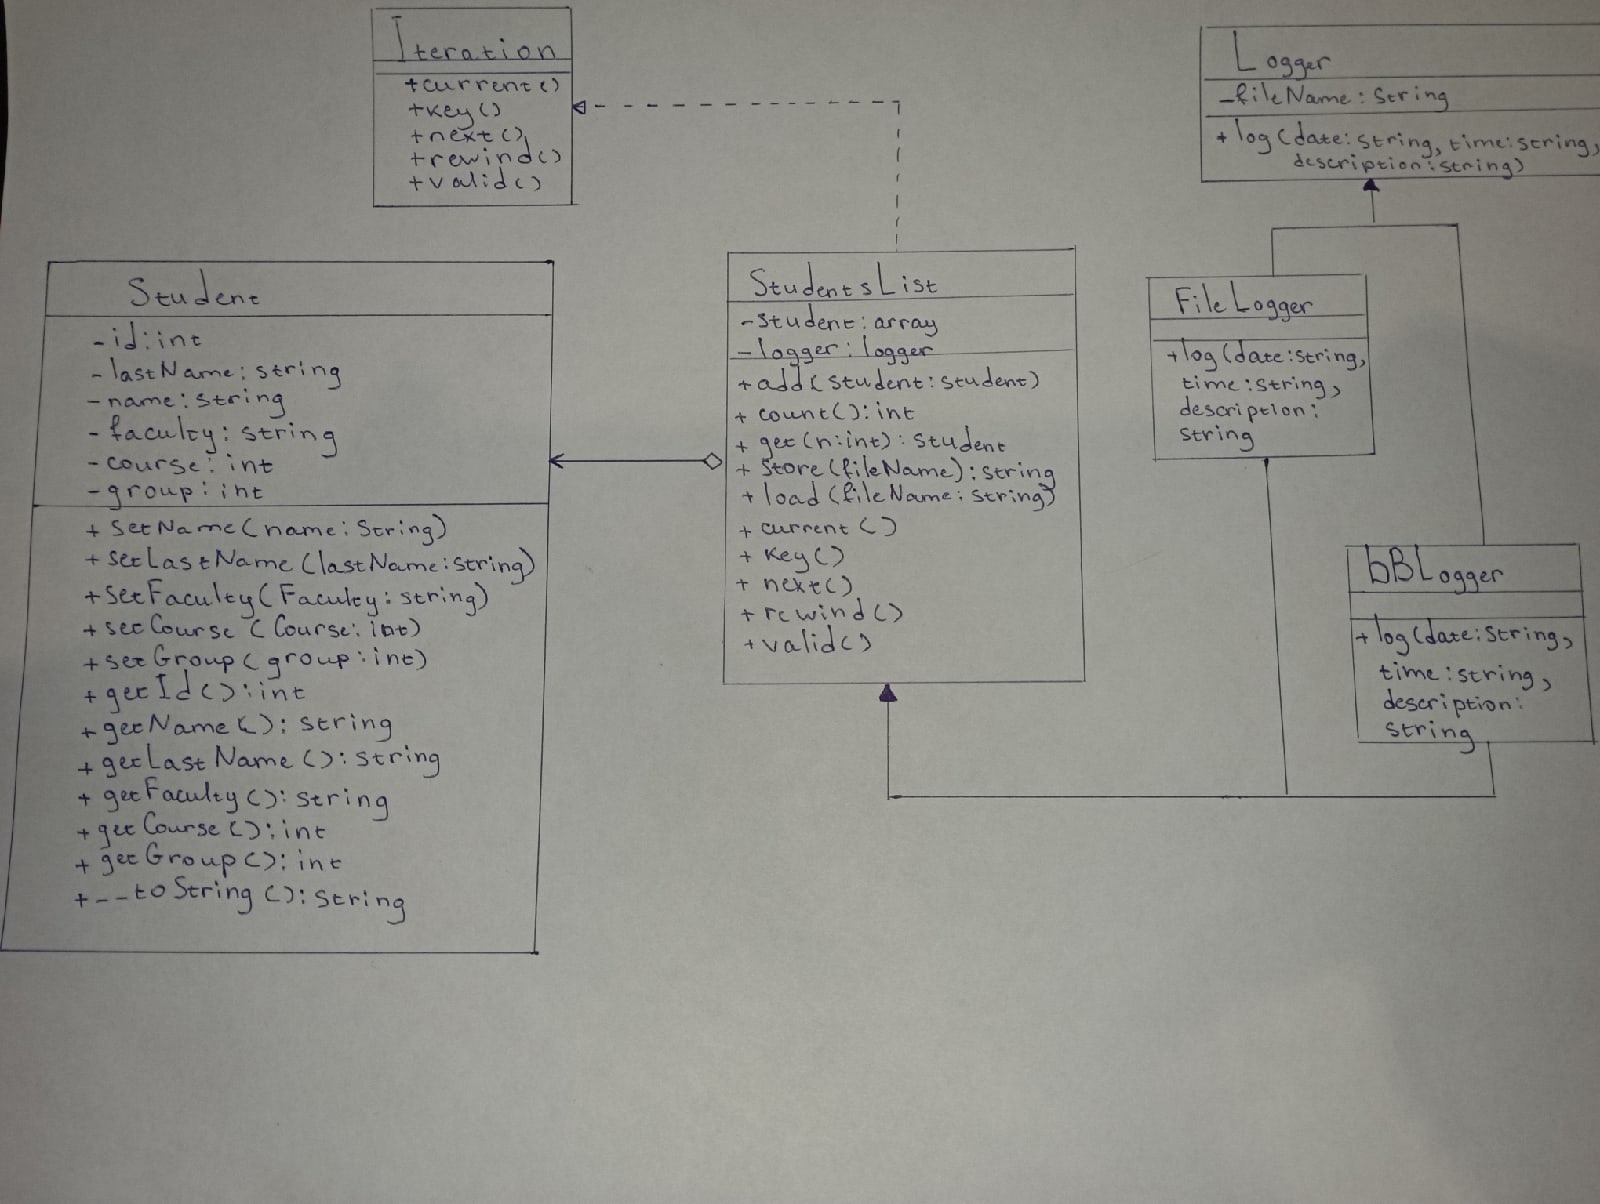 Iteration
+current()
+key()
+next()
+rewind()
+valid()
Logger
-fileName: String
+ log(date: string, time: string,
description: string)
Student
- id: int
- lastName: string
- name: string
- faculty: string
- course: int
- group: int
+ setName(name: String)
+ setLastName(lastName: string)
+ setFaculty(Faculty: string)
+ setCourse (Course: int)
+ setGroup(group: int)
+ getId(): int
+ getName(): string
+ getLastName(): string
+ getFaculty(): string
+ getCourse(): int
+ getGroup(): int
+__toString(): string
StudentsList
-student: array
- logger: logger
+ add(student: student)
+ count(): int
+ get(n: int): student
+ store(fileName): string
+ load(fileName: string)
+ current()
+ Key()
+ next()
+ rewind()
+ valid()
FileLogger
+log(date: string,
time: string,
description:
string
bBLogger
+ log(date: string,
time: string,
description:
string